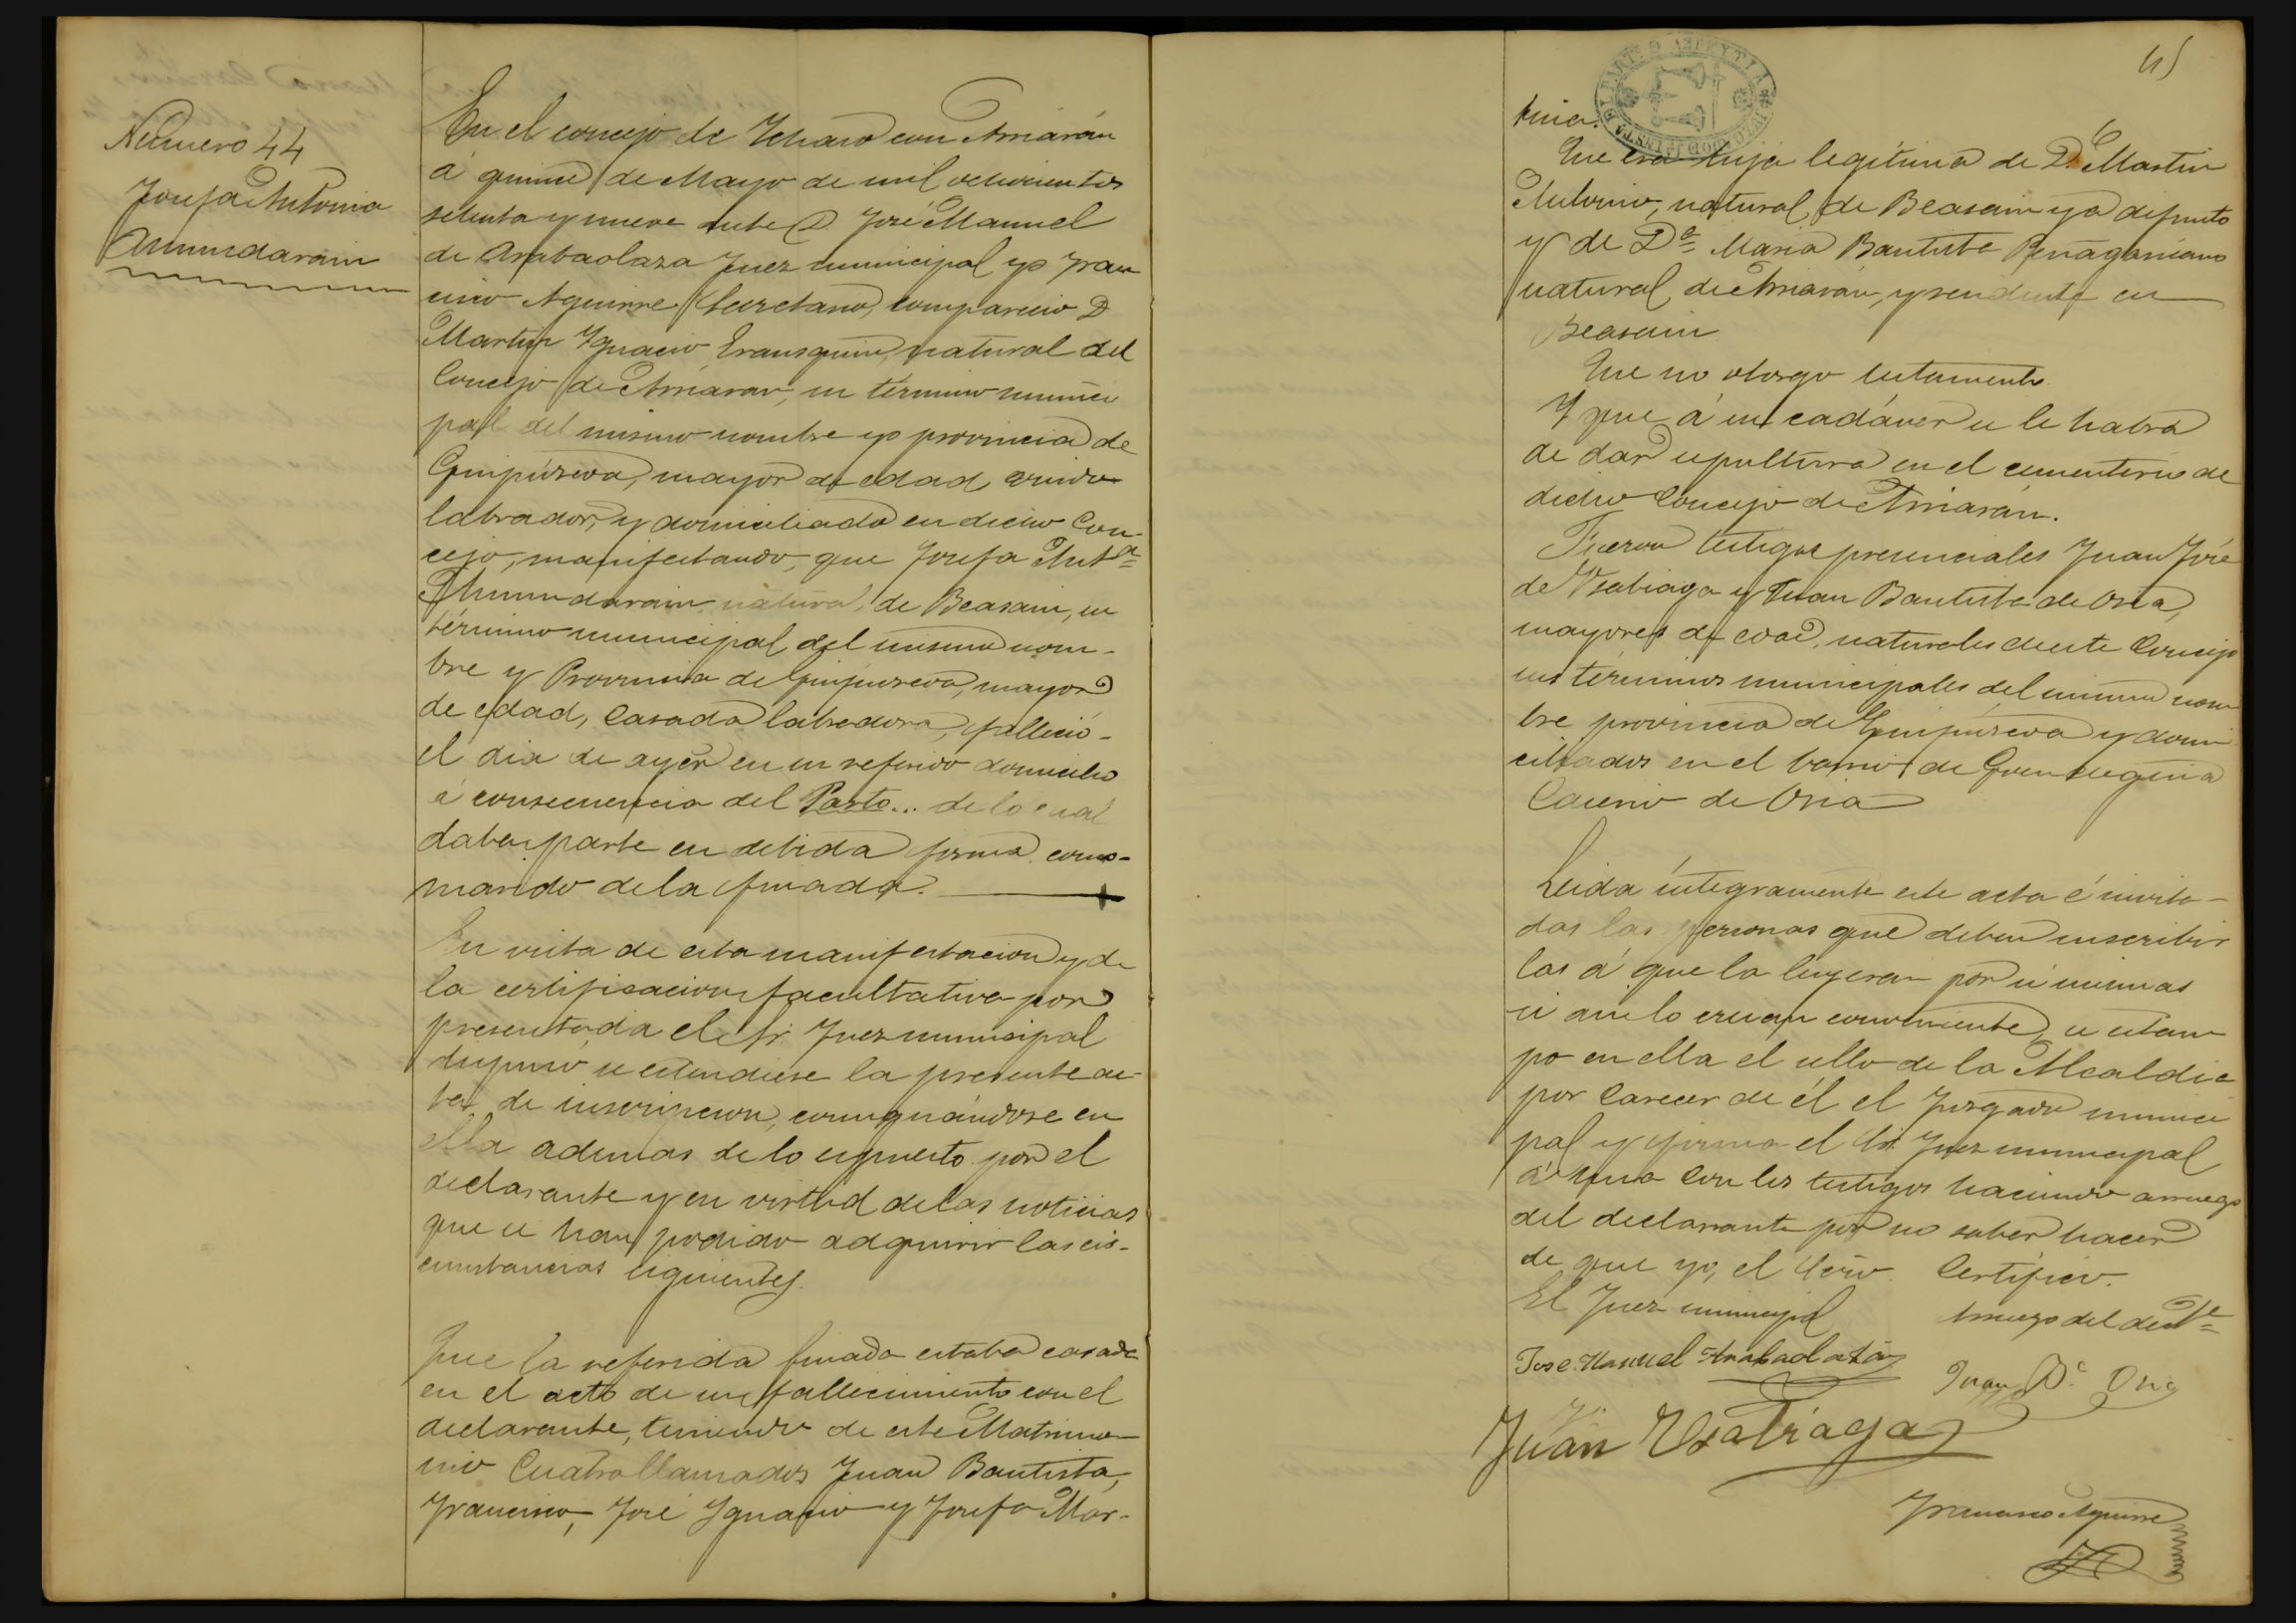 Número 44
Josefa Antonia
Amundarain
En el concejo de Ichaso con Arriarán
á quince de Mayo de mil ochocientos
setenta y nueve ante D. José Manuel
de Arabaolaza Juez municipal y Fran
cisco Aguirre Secretario, compareció D
Martin Ignacio Eransquin, natural del
Concejo de Arriaran, su término munici
pal del mismo nombre y provincia de
Guipúzcoa, mayor de edad,
labrador, y domiciliado en dicho Con-
cejo, manifestando, que Josefa Antª
Amundarain natural de Beasain, su
término municipal del mismo nom-
bre y Provincia de Guipúzcoa, mayor
de edad, Casada labradora, falleció
el dia de ayer en su referido domicilio
á consecuencia del Parto... de lo cual
daba parte en debida forma como
marido de la finada.
En vista de esta manifestacion y de
la certificacion facultativa por
presentada el Sr Juez municipal
dispuso se estendiese la presente ac-
ta de inscripcion, consignándose en
ella ademas de lo espuesto por el
declarante y en virtud de las noticias
que se han podido adquirir las cir-
cunstancias siguientes.
Que la referida finada estaba casada
en el acto de su fallecimiento con el
declarante, teniendo de este Matrimo-
nio Cuatro llamados Juan Bautista,
Francisco, José Ignacio y Josefa Mar-
45
tina.
Que era hija legítima de D. Martin
Antonio, natural de Beasain ya difunto
y de Dª Maria Bautista
natural de Arriarán, y residente en
Beasain
Que no otorgo testamento
Y que á su cadáver se le habra
de dar sepultura en el cementerio de
dicho Concejo de Arriarán.
Fueron testigos presenciales Juan José
de Usabiaga y Juan Bautista de Oria,
mayores de edad, naturales de este Concejo
sus términos municipales del mismo nom
bre provincia de Guipúzcoa y domi
ciliados en el barrio de
Caserio de Oria
Leida íntegramente este acta é invita-
das las personas que deben suscribir
las á que la leyeran por si mismas
si asi lo creian conveniente, se estam
po en ella el sello de la Alcaldia
por Carecer de él el Juzgado munici
pal y firma el Sr. Juez municipal
á una Con los testigos haciendo arruego
del declarante por no saber hacer
de que yo, el Srio Certifico.
El Juez municipal
Arruego del decte
Jose Manuel Arabaolaza
Juan Bª Oria
Juan Usabiaga
Francisco Aguirre